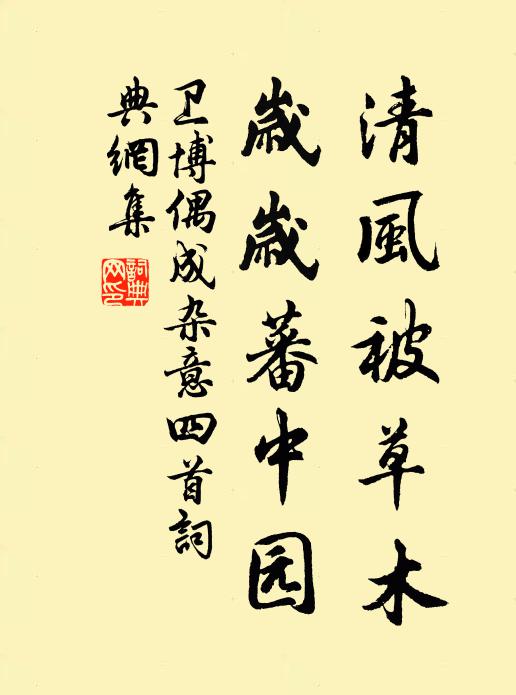 清風被草木
歲歲蕃中园
卫博偶成杂意四首詞
典網集
詞典网印